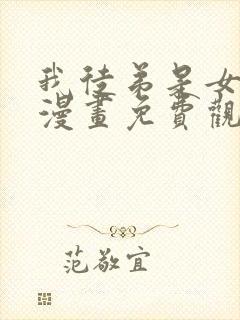 我徒弟是女
漫畫免費觀
范敬宜